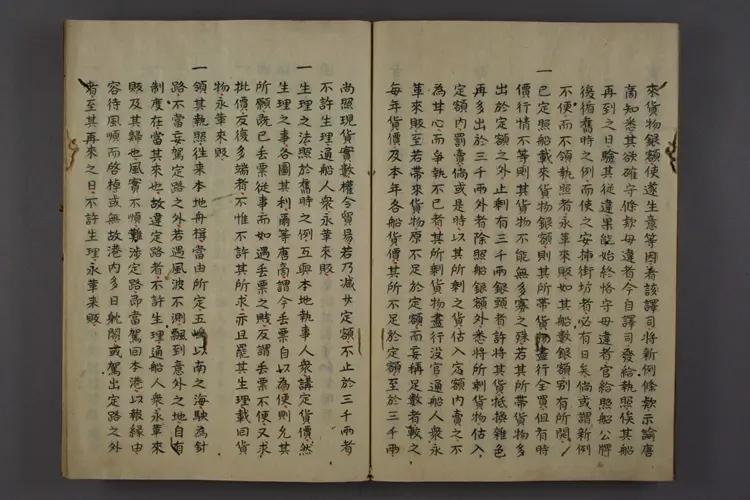 來貨物銀額使遂生意等因着該譯司將新例條款示諭唐
商知悉其欲確守條款毋違者今自譯司發給執照俟其船
再到之日驗其從違果能始終恪守毋違者官給照船公牌
後循舊時之例而使之安揷街坊者必有日矣倘或謂新例
不便而不領執照者永革來販如其船數銀額别有所開
一 已定照船載來貨物銀額則其所帶貨物盡行全買但有時
價行情不等則其貨物不能無多寡之殊若其所帶貨物多
出於定額之外止剩有三千銀頭者許將其貨抵換雜色
再多出於三千兩外者除照船銀額外悉將所剩貨物估入
定額内罰賣倘或是時以其所剩之貨估入定額内賣之不
為甘心而爭執不已者其所剩貨物盡行没官通船人衆永
革來販至若帶來貨物原不足於定額而妄稱足數者較之
每年貨價及本年各船貨價其所不足於定額至於三千兩
尚照現貨實數權令貿易若乃减少定額不止於三千兩者
不許生理通船人衆永革來販
一 生理之法照於舊時之例互與本地執事人衆講定貨價然
生理之事各圖其利爾等唐商謂今丢票自以為便則允其
所願既已丢票從事而如遇丢票之賤反謂丢票不便又求
批價反復多端者不惟不許其所求亦且罷其生理載回貨
物永革來販
一 領其執照徃來本地舟楫當由所定五嶋以南之海駛為針
路不當妄駕定路之外若遇風波不測飄到意外之地自有
制度在當其來也故違定路者不許生理通船人衆永革來
販及其歸也風實不順難涉定路即當駕回本港以報緣由
容待風順而啓棹或無故港内多日躭閣或駕出定路之外
者至其再來之日不許生理永革來販